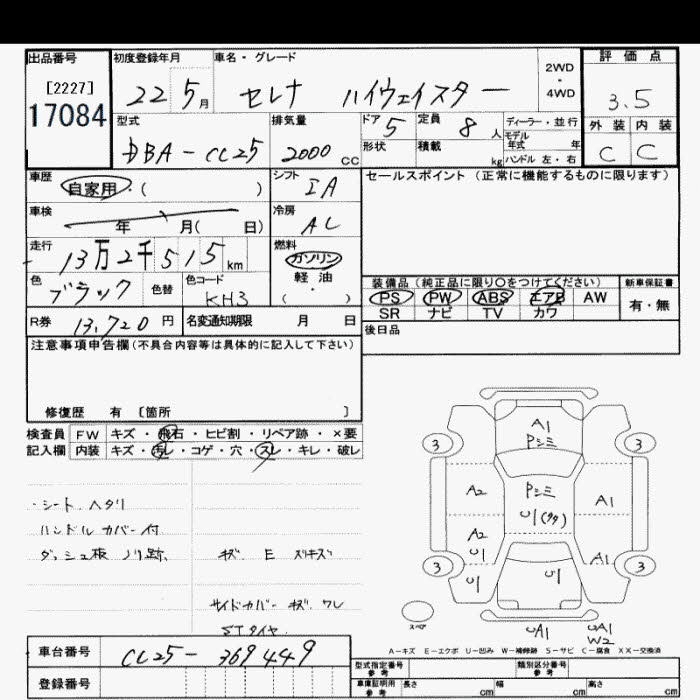 出品番号 初度登録年月 車名・グレード 2WD・4WD 評価点
[2227]
17084
22 5月 セレナ ハイウェイスター 3.5
型式 排気量 ドア 5 定員 8人 ディーラー・並行 外装 内装
DBA-CC25 2000cc 形状 積載 kg モデル年式 年 ハンドル 左・右 C C
車歴 自家用・( ) シフト IA セールスポイント(正常に機能するものに限ります)
車検 年 月( 日) 冷房 AC
走行 13万2千515km 燃料 ガソリン 軽油 ・( )
色 ブラック 色替 色コード KH3
装備品(純正品に限り○をつけてください) 新車保証書
PS PW ABS エアB AW 有・無
SR ナビ TV カワ
R券 13,720円 名変通知期限 月 日 後日品
注意事項申告欄(不具合内容等は具体的に記入して下さい)
修復歴 有 〔箇所 〕
検査員 FW キズ・飛石・ヒビ割・リペア跡・×要
記入欄 内装 キズ・汚レ・コゲ・穴・スレ・キレ・破レ
・シート ヘタリ
ハンドル カバー付
ダッシュ板 ノリ跡、 キズ E スリキズ
サイドカバー キズ、ワレ
STタイヤ.
A1
Pシミ
3 3
Pシミ
A2 A1
U1(タタ)
A2
U1 A1
3 3
U1 U1
スペア
A1 A1
W2
A-キズ E-エクボ U-凹み W-補修跡 S-サビ C-腐食 XX-交換済
車台番号 CC25-369449
型式指定番号 参考 類別区分番号 参考
登録番号 車庫証明用 参考 長さ cm 幅 cm 高さ cm